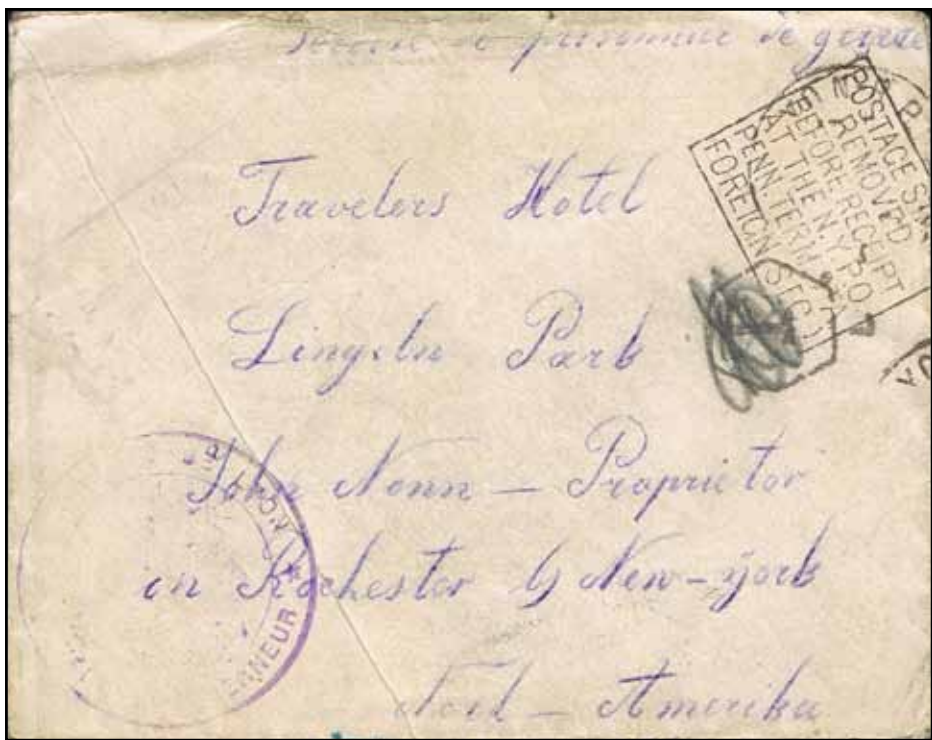 prisonnier de guerre
POSTAGE
REMOVED
BEFORE RECEIPT
AT THE N.Y. P.O.
PENN. TERM.
FOREIGN SEC.
Travelers Hotel
Park
John Nonn — Proprietor
in Rochester New-york
Nord — Amerika